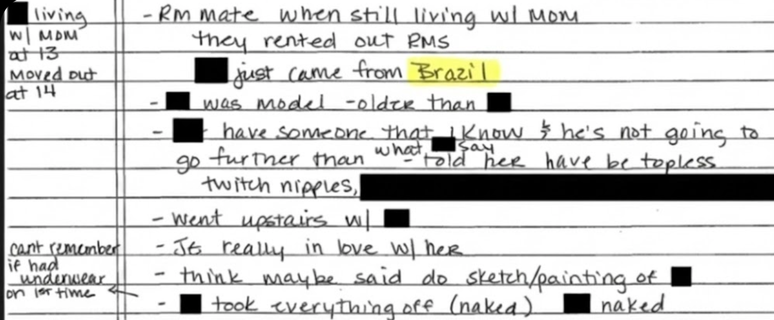 living
w/ Mom
at 13
Moved out
at 14
- Rm mate when still living w/ Mom
they rented out RMS
just came from Brazil
- was model - older than
- have someone that I know & he's not going to
go further than what say - told her have be topless
twitch nipples,
- went upstairs w/
- JE really in love w/ her
- think maybe said do sketch/painting of
- took everything off (naked) naked
cant remember
if had
underwear
on 1st time